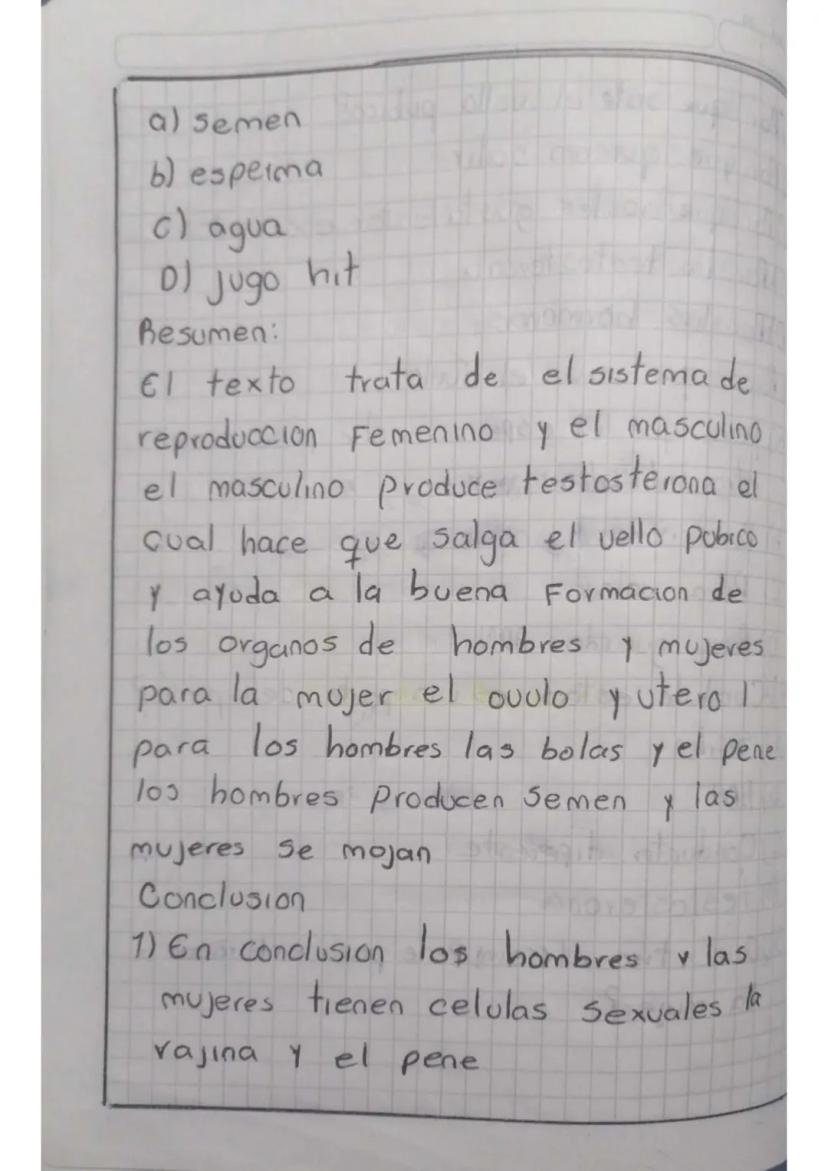 a) semen
b) esperma
c) agua
D) jugo hit
Resumen:
El texto trata de el sistema de
reproduccion Femenino y el masculino
el masculino produce testosterona el
cual hace que salga el vello pubico
y ayuda a la buena Formacion de
los organos de hombres y mujeres
para la mujer el ovulo y utero
para los hombres las bolas y el pene
los hombres producen semen y las
mujeres se mojan
Conclusion
1) En conclusion los hombres y las
mujeres tienen celulas sexuales la
vajina y el pene